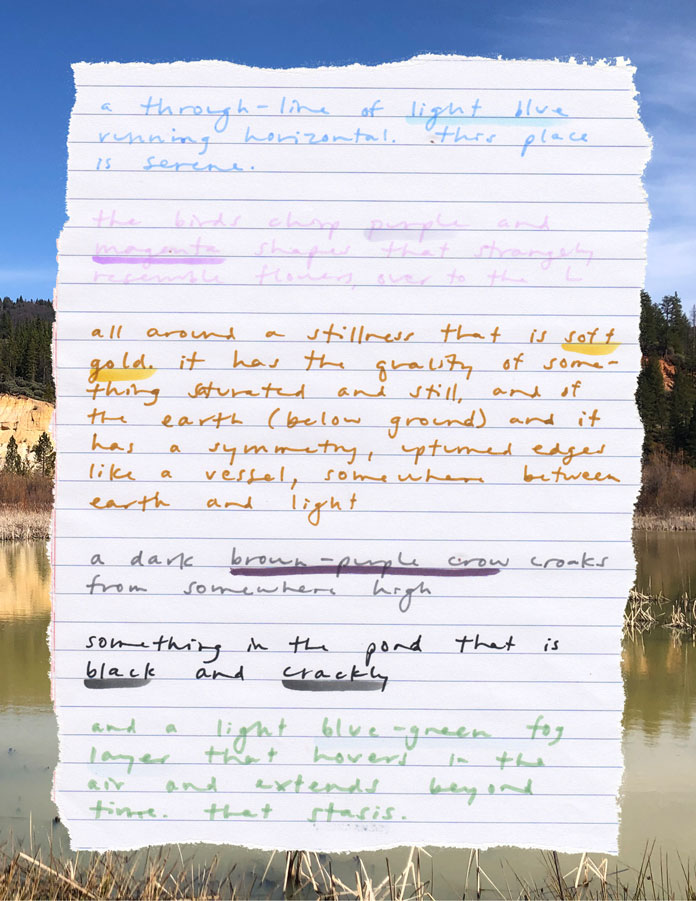 a through-line of light blue
running horizontal. this place
is serene.
the birds chirp purple and
magenta shapes that strangely
resemble flowers, over to the L
all around a stillness that is soft
gold. it has the quality of some-
thing saturated and still, and of
the earth (below ground) and it
has a symmetry, upturned edges
like a vessel, somewhere between
earth and light
a dark brown-purple crow croaks
from somewhere high
something in the pond that is
black and crackly
and a light blue-green fog
layer that hovers in the
air and extends beyond
time. that stasis.